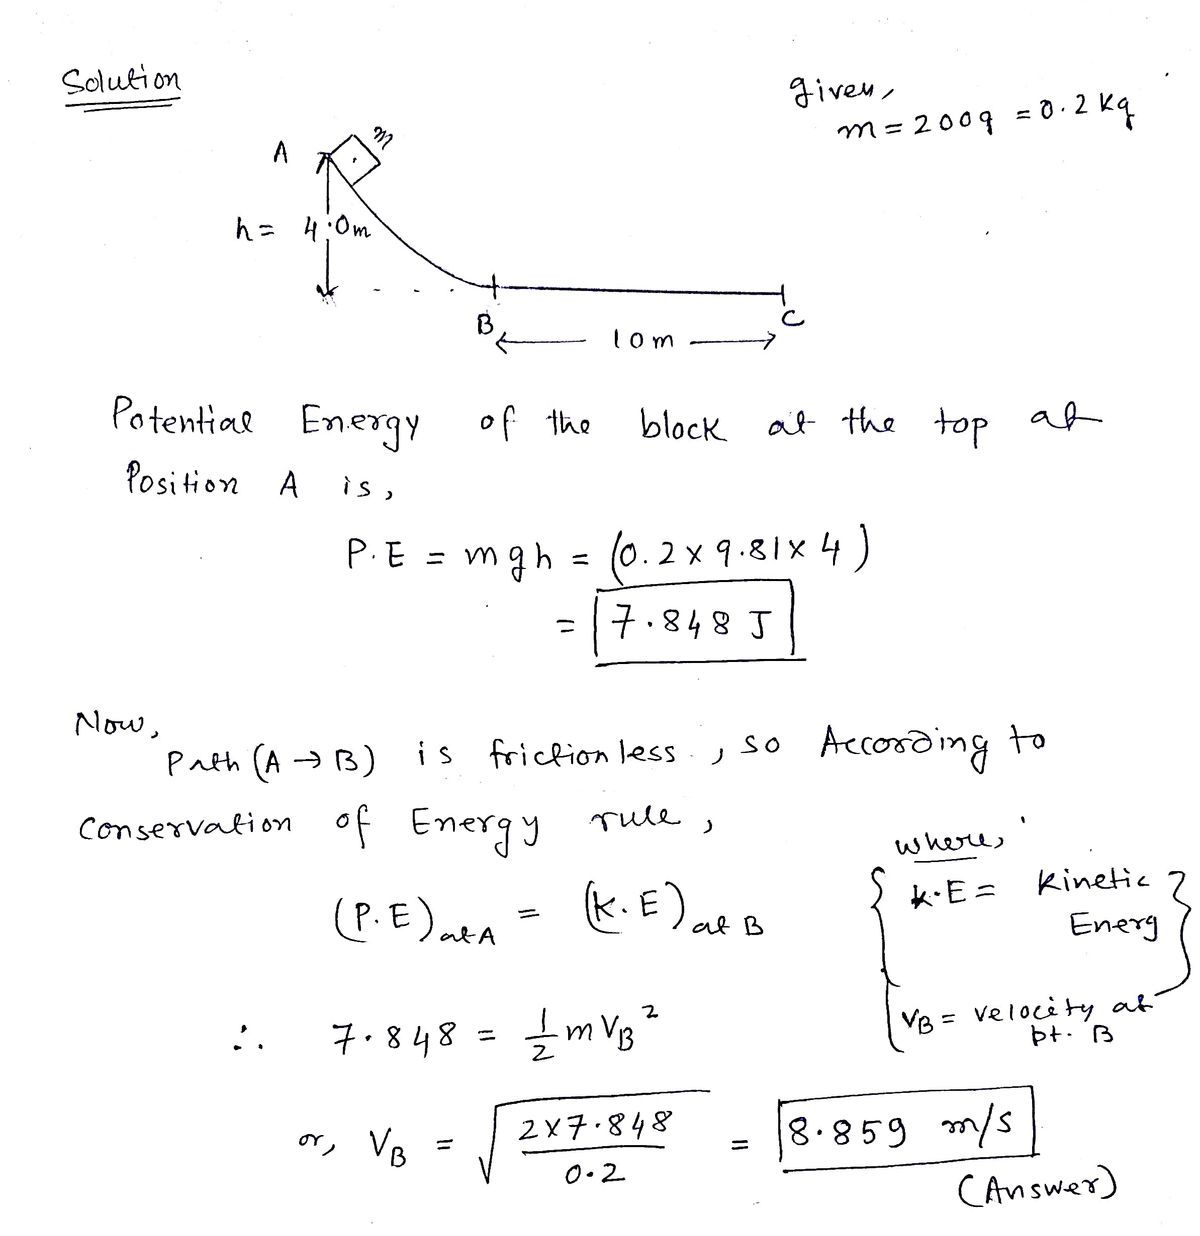 Solution
given,
m = 200g = 0.2 Kg
A
m
h = 4.0m
B
C
10m
Potential Energy of the block at the top at
Position A is,
P.E = mgh = (0.2 x 9.81 x 4)
= 7.848 J
Now,
Path (A → B) is frictionless., so According to
Conservation of Energy rule,
where,
(P.E) at A = (K.E) at B
K.E = Kinetic
Energ
VB = velocity at
pt. B
∴ 7.848 = 1/2 m VB²
or, VB = √(2x7.848/0.2) = 8.859 m/s
(Answer)